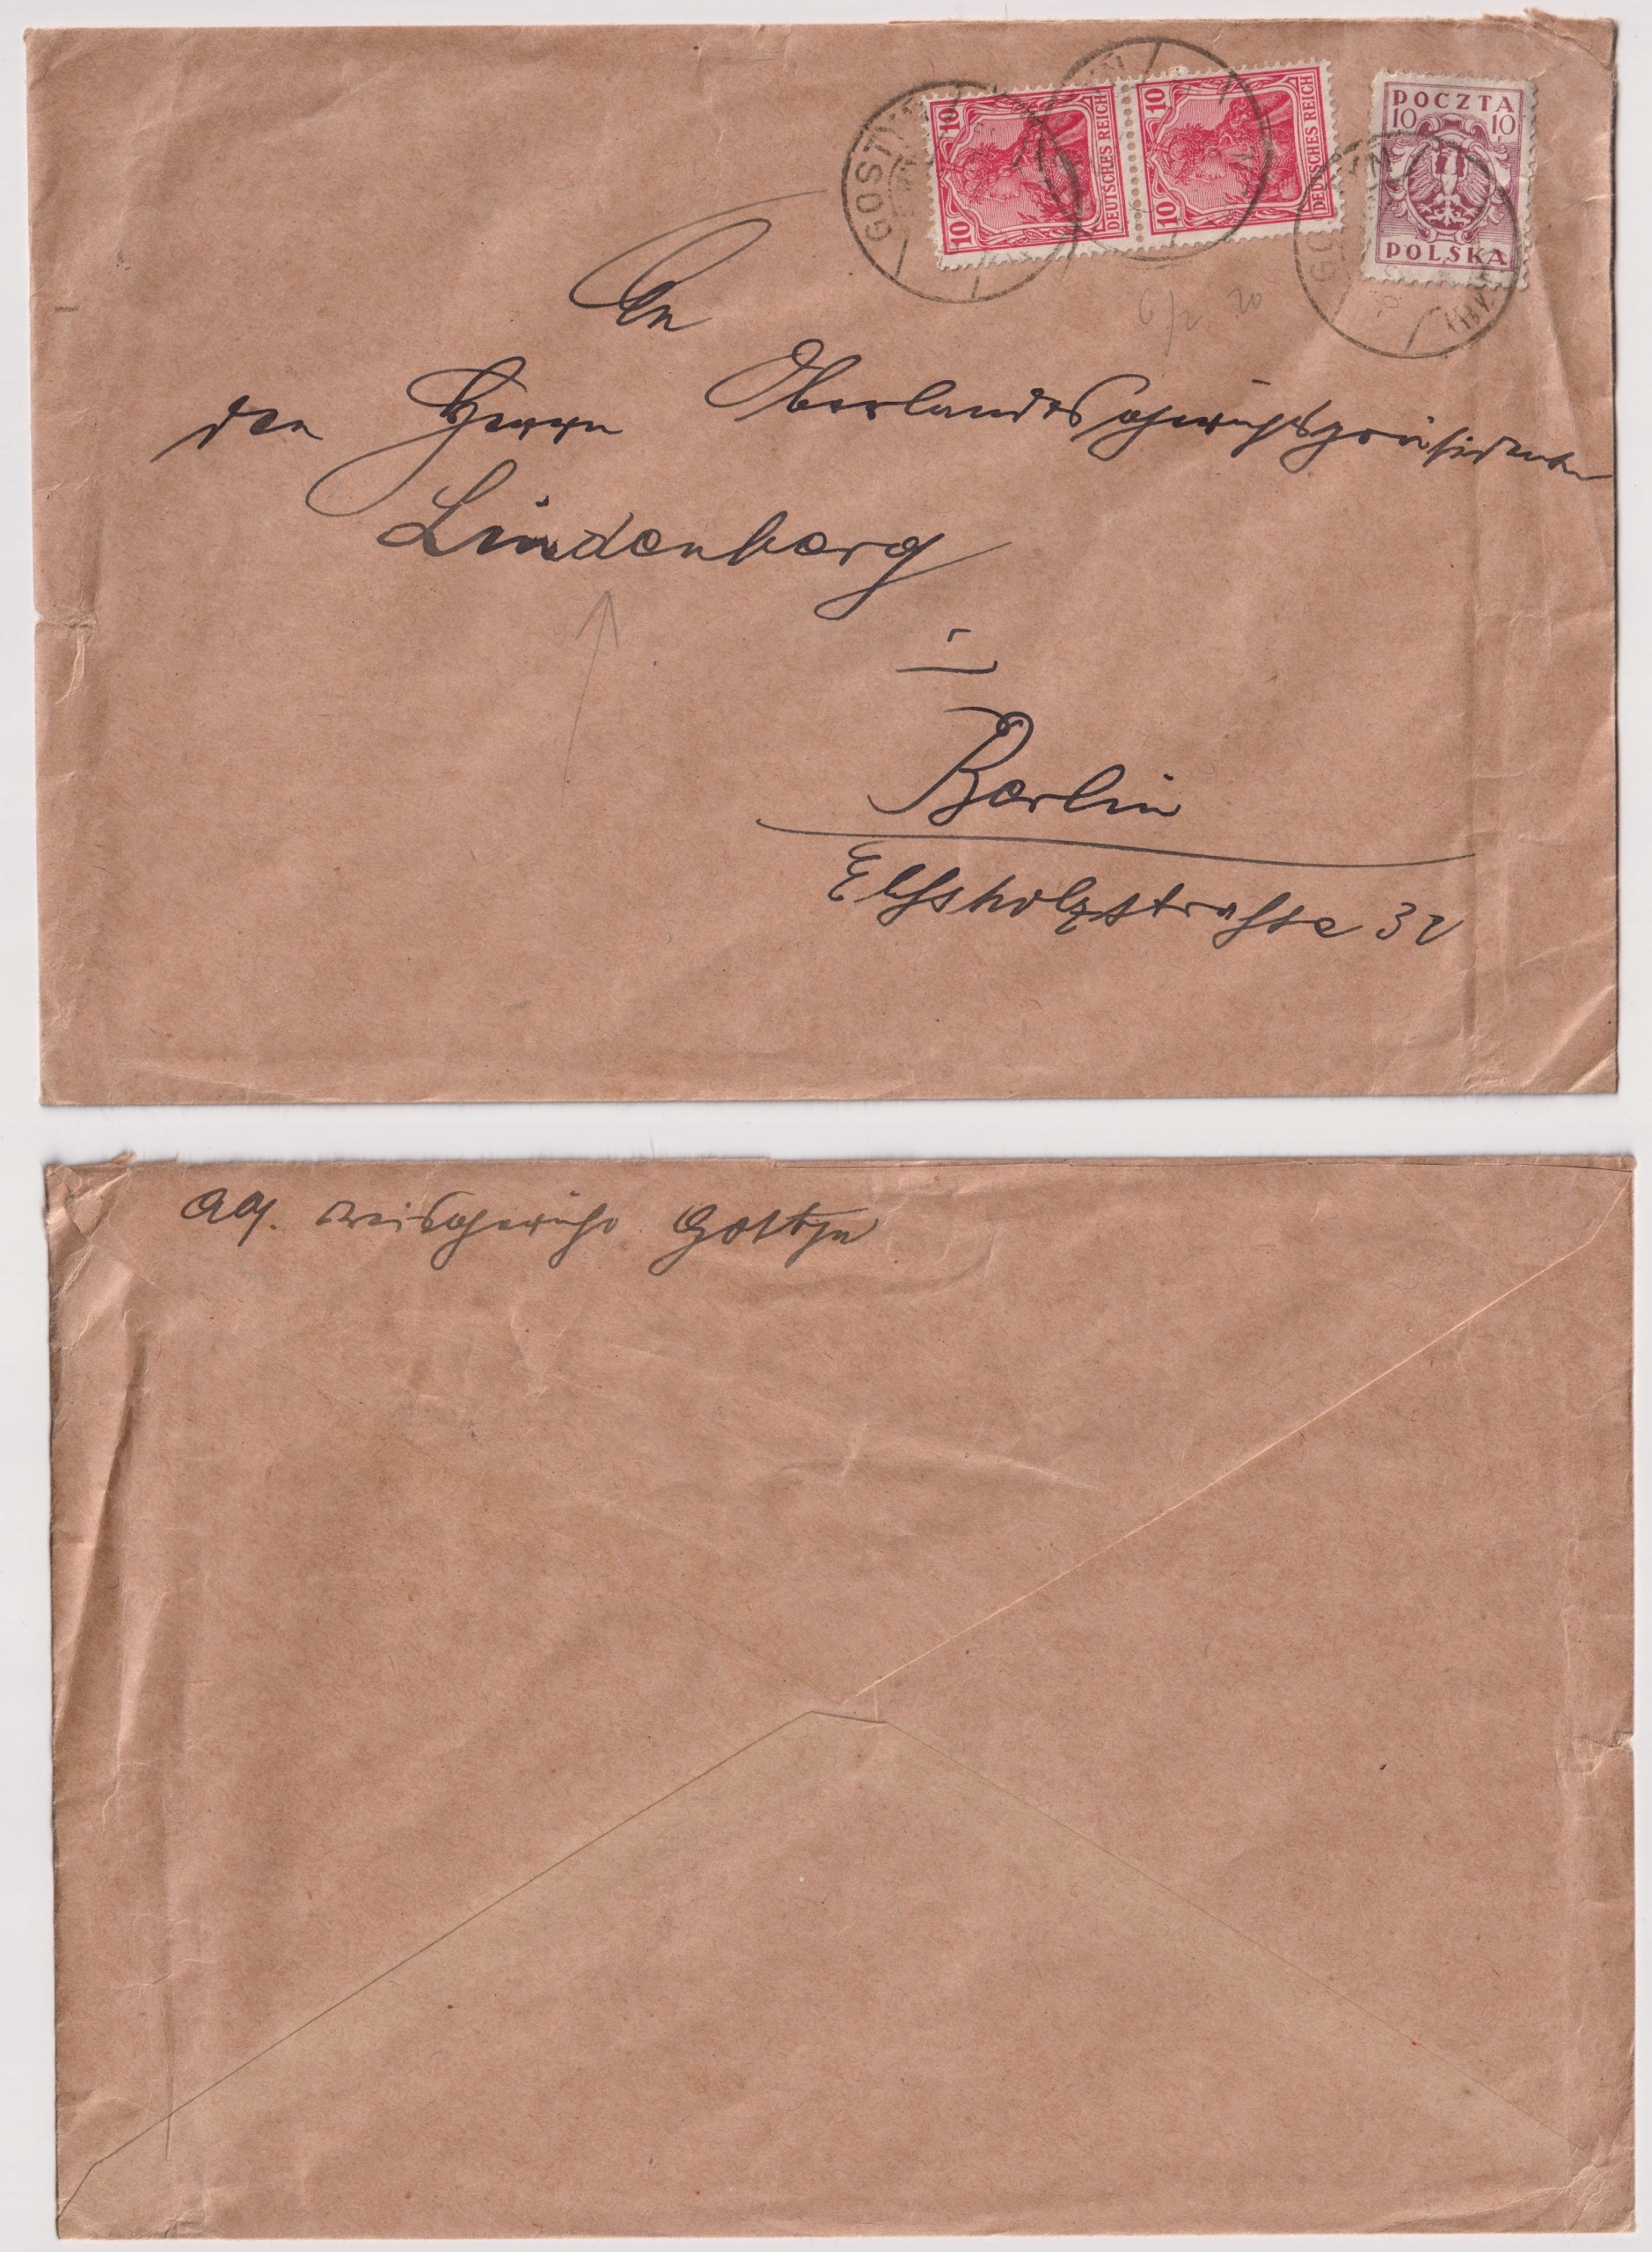 10 10
DEUTSCHES REICH
10 10
DEUTSCHES REICH
POCZTA
10 10
POLSKA
GOSTYN
An
den Herrn Oberlandesgerichtspräsidenten
Lindenberg
in
Berlin
Elßholzstraße 32
Kreisgericht Gostyn